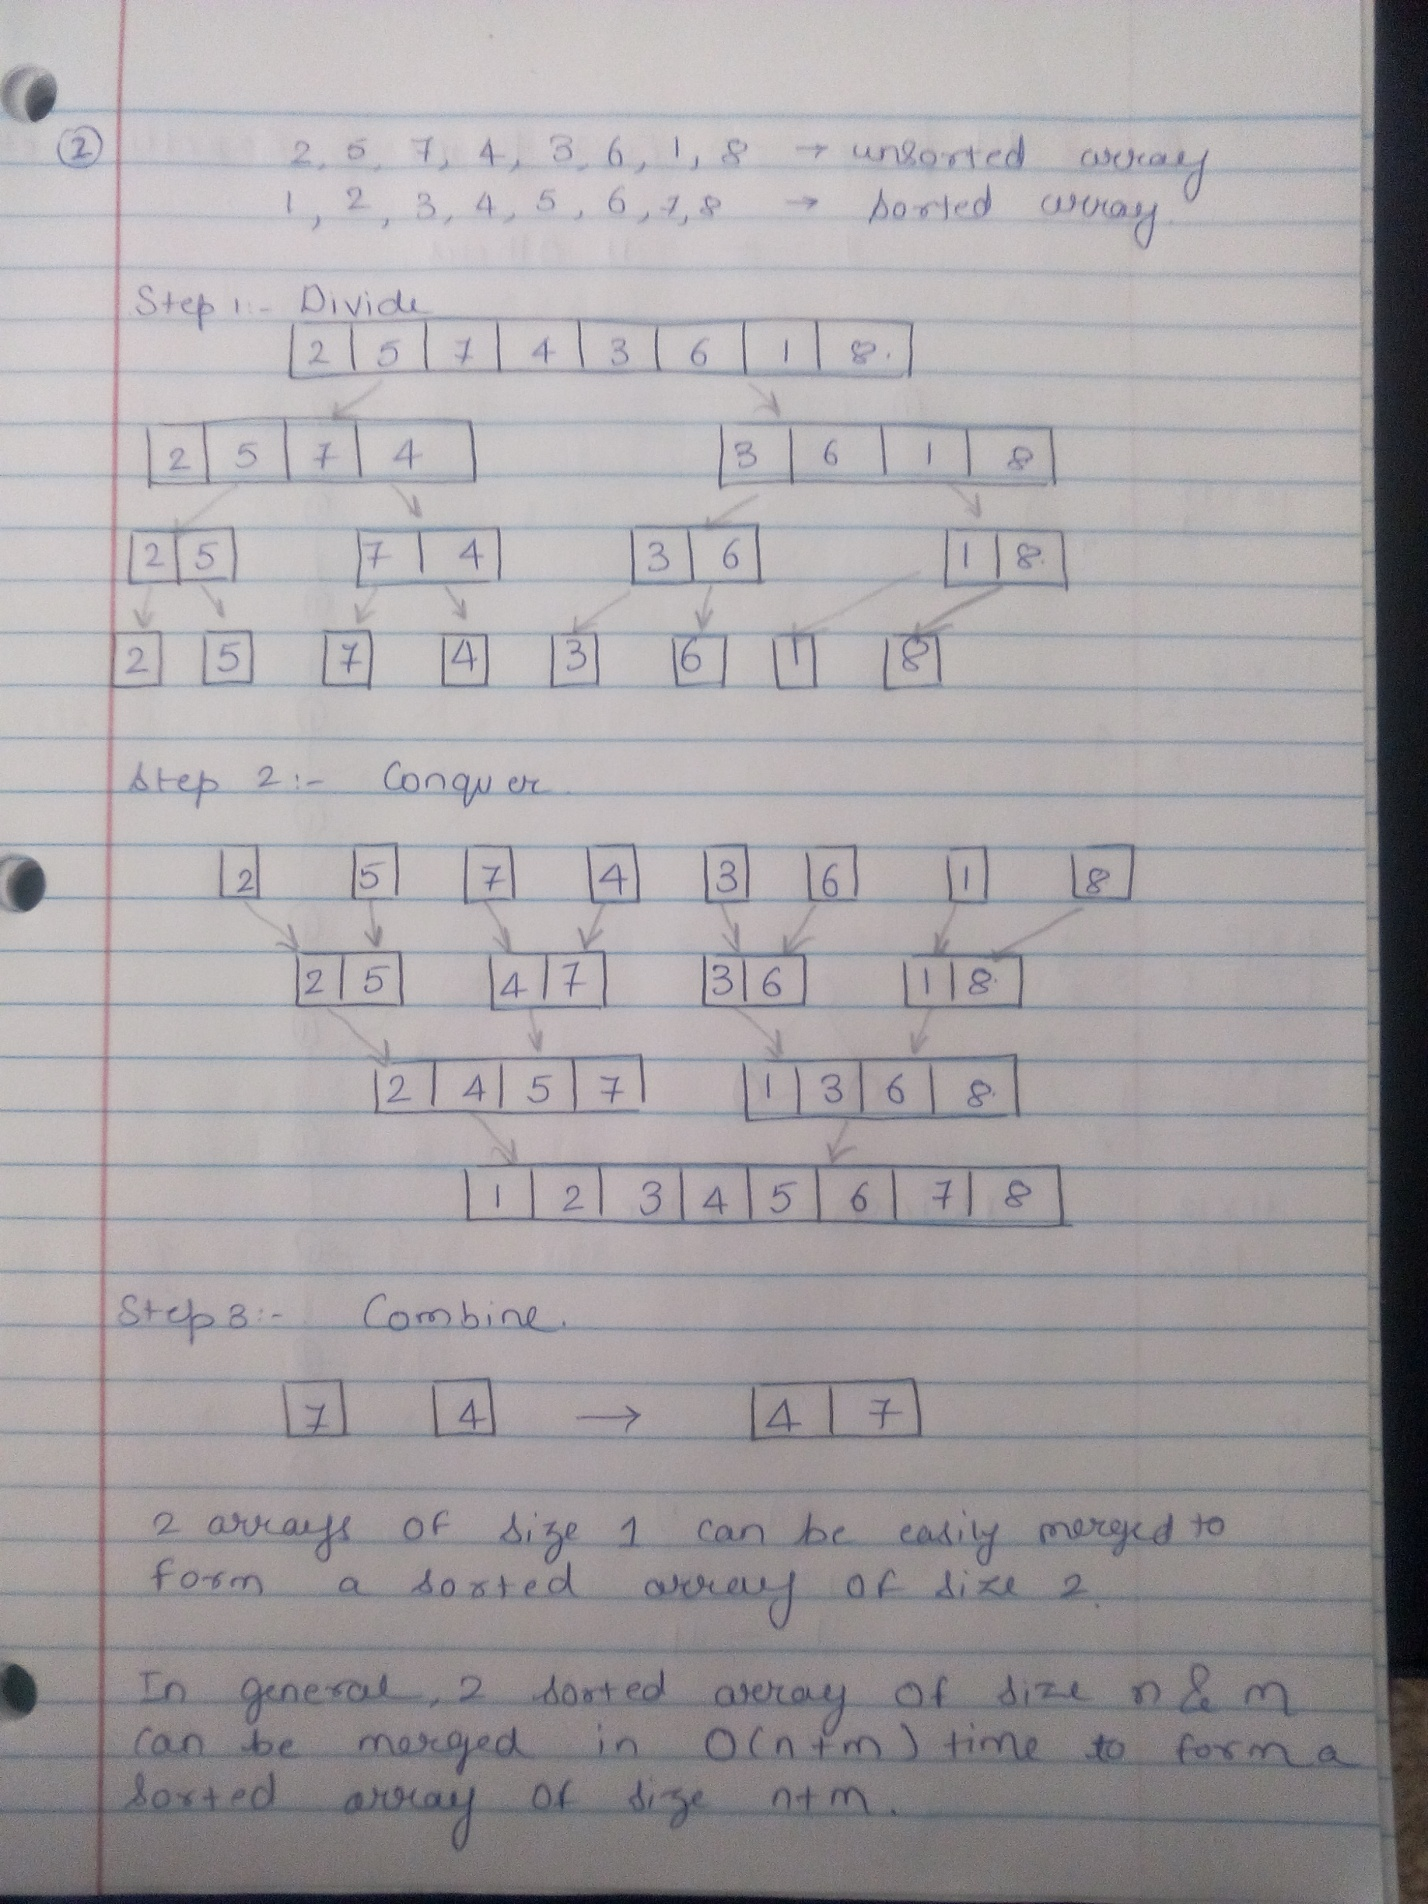 ② 2, 5, 7, 4, 3, 6, 1, 8 → unsorted array
1, 2, 3, 4, 5, 6, 7, 8 → sorted array
Step 1:- Divide
2 5 7 4 3 6 1 8
2 5 7 4 3 6 1 8
2 5 7 4 3 6 1 8
2 5 7 4 3 6 1 8
Step 2:- Conquer
2 5 7 4 3 6 1 8
2 5 4 7 3 6 1 8
2 4 5 7 1 3 6 8
1 2 3 4 5 6 7 8
Step 3:- Combine.
7 4 → 4 7
2 arrays of size 1 can be easily merged to
form a sorted array of size 2.
In general, 2 sorted array of size n & m
can be merged in O(n+m) time to form a
sorted array of size n+m.